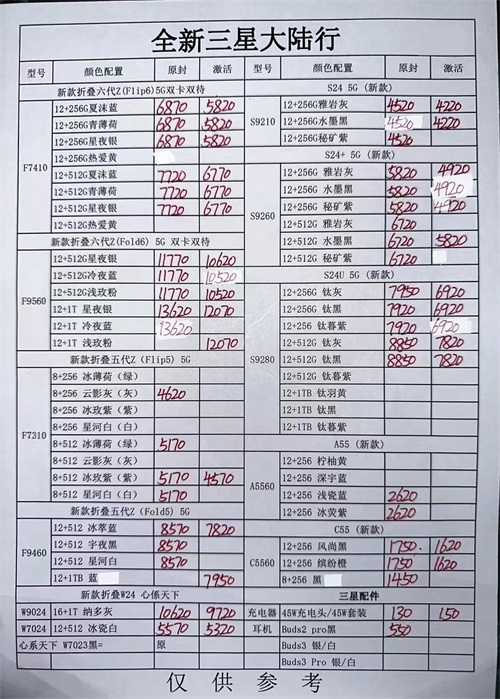 全新三星大陆行
型号 颜色配置 原封 激活
新款折叠六代Z(Flip6)5G双卡双待
F7410
12+256G夏沫蓝 6870 5820
12+256G青薄荷 6870 5820
12+256G星夜银 6870 5820
12+256G热爱黄
12+512G夏沫蓝 7720 6770
12+512G青薄荷 7720 6770
12+512G星夜银 7720 6770
12+512G热爱黄
新款折叠六代Z(Fold6) 5G 双卡双待
F9560
12+512G星夜银 11770 10620
12+512G冷夜蓝 11770 10520
12+512G浅玫粉 11770 10520
12+1T 星夜银 13620 12070
12+1T 冷夜蓝 13620
12+1T 浅玫粉 12070
新款折叠五代Z (Flip5) 5G
F7310
8+256 冰薄荷(绿)
8+256 云影灰(灰) 4620
8+256 冰玫紫(紫)
8+256 星河白(白)
8+512 冰薄荷(绿) 5170
8+512 云影灰(灰)
8+512 冰玫紫(紫) 5170 4570
8+512 星河白(白) 5170
新款折叠五代Z (Fold5) 5G
F9460
12+512 冰萃蓝 8570 7820
12+512 宇夜黑 8570
12+512 星河白 8570
12+1TB 蓝 7950
新款折叠W24 心係天下
W9024 16+1T 纳多灰 10620 9720
W7024 12+512 冰瓷白 5570 5320
心系天下 W7023黑= 原
型号 颜色配置 原封 激活
S24 5G (新款)
S9210
12+256G雅岩灰 4520 4220
12+256G水墨黑 4520 4220
12+256G秘矿紫 4520
S24+ 5G (新款)
S9260
12+256G 雅岩灰 5820 4920
12+256G 水墨黑 5820 4920
12+256G 秘矿紫 5820 4920
12+512G 雅岩灰 6720
12+512G 水墨黑 6720 5820
12+512G 秘矿紫 6720
S24U 5G (新款)
S9280
12+256G 钛灰 7950 6920
12+256G 钛黑 7920 6920
12+256 钛暮紫 7920 6920
12+512G 钛灰 8850 7820
12+512G 钛黑 8850 7820
12+512G 钛暮紫
12+1TB 钛羽黄
12+1TB 钛黑
12+1TB 钛暮紫
A55 (新款)
A5560
12+256 柠柚黄
12+256 深宇蓝
12+256 浅瓷蓝 2620
12+256 冰荧紫 2620
C55 (新款)
C5560
12+256 风尚黑 1750. 1620
12+256 缤纷橙 1750 1620
8+256 黑 1450
三星配件
充电器 45W充电头/45W套装 130 150
耳机 Buds2 pro黑 550
Buds3 银/白
Buds3 Pro 银/白
仅供参考